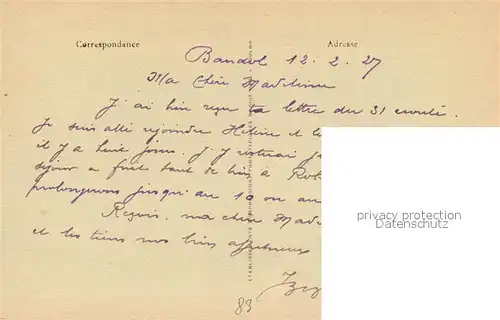 Correspondance
Adresse
Bandol 12.2.27
Ma Chère Madeleine
J'ai bien reçu ta lettre du 31 écoulé.
Je suis allé rejoindre Hélène et le
il y a huit jours. J'y resterai
séjour a fait tant de bien à Rob
prolongerons jusqu'au 10 ou
Reçois, ma chère Made
et les tiens nos bien affectueux
privacy protection
www.oldthing.de
83